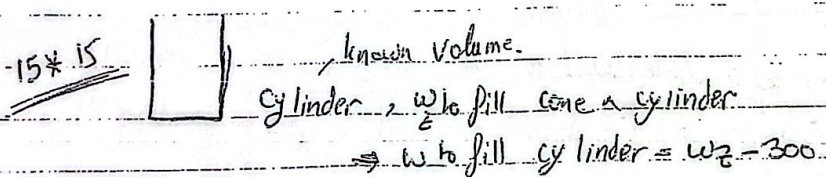 15* 15
known volume.
Cylinder, W to fill cone & cylinder
⇒ W to fill cylinder = W₂ - 300